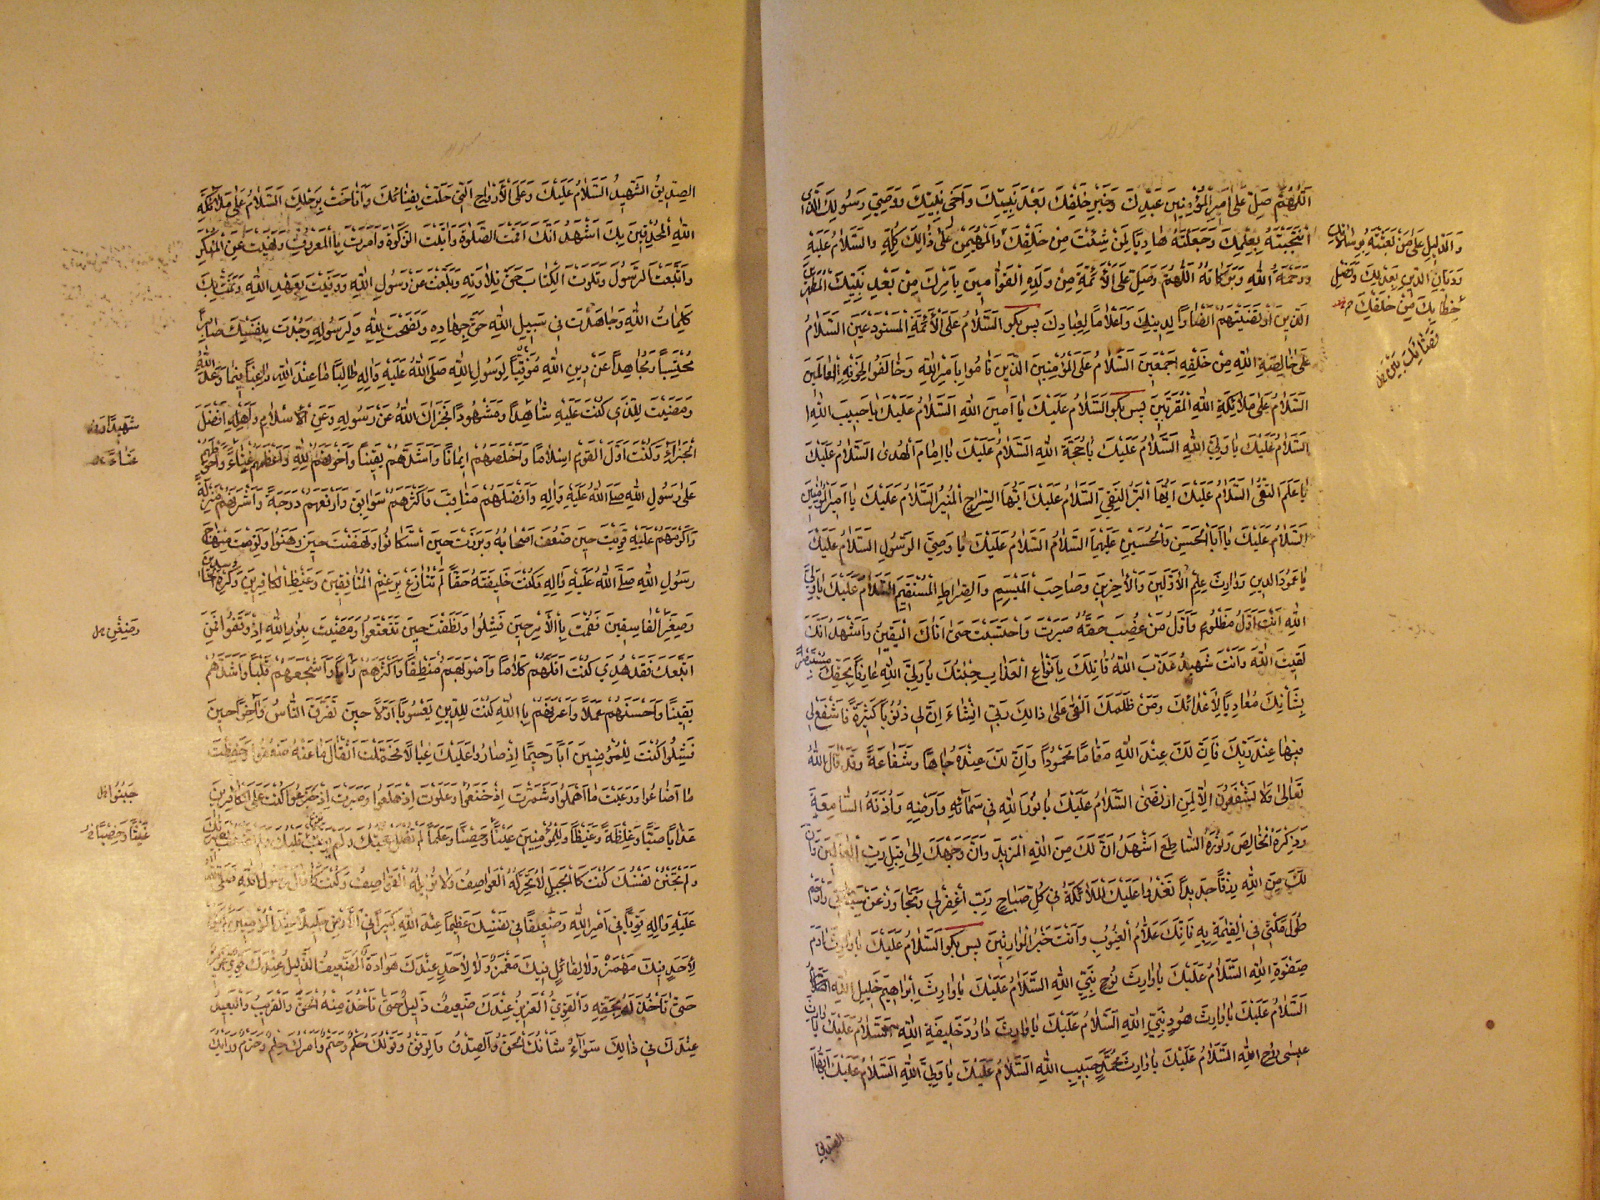 اَللّٰهُمَّ صَلِّ عَلٰى اَمِيرِ الْمُؤْمِنِينَ عَبْدِكَ وَخَيْرِ خَلْقِكَ بَعْدَ نَبِيِّكَ وَاَخِي نَبِيِّكَ وَوَصِيِّ رَسُولِكَ الَّذِي
انْتَجَبْتَهُ بِعِلْمِكَ وَجَعَلْتَهُ هَادِيًا لِمَنْ شِئْتَ مِنْ خَلْقِكَ وَالْمُهَيْمِنِ عَلٰى ذٰلِكَ كُلِّهِ وَالسَّلَامُ عَلَيْهِ
وَرَحْمَةُ اللهِ وَبَرَكَاتُهُ اَللّٰهُمَّ وَصَلِّ عَلَى الْاَئِمَّةِ مِنْ وُلْدِهِ الْقَوَّامِينَ بِاَمْرِكَ مِنْ بَعْدِ نَبِيِّكَ الْمُطَهَّرِينَ
الَّذِينَ ارْتَضَيْتَهُمْ اَنْصَارًا لِدِينِكَ وَاَعْلَامًا لِعِبَادِكَ پس بكو السَّلَامُ عَلَى الْاَئِمَّةِ الْمُسْتَوْدَعِينَ السَّلَامُ
عَلٰى خَالِصَةِ اللهِ مِنْ خَلْقِهِ اَجْمَعِينَ السَّلَامُ عَلَى الْمُؤْمِنِينَ الَّذِينَ قَامُوا بِاَمْرِ اللهِ وَخَالَفُوا لِخَوْفِهِ الْعَالَمِينَ
السَّلَامُ عَلٰى مَلَائِكَةِ اللهِ الْمُقَرَّبِينَ پس بكو السَّلَامُ عَلَيْكَ يَا اَمِينَ اللهِ السَّلَامُ عَلَيْكَ يَا حَبِيبَ اللهِ
السَّلَامُ عَلَيْكَ يَا وَلِيَّ اللهِ السَّلَامُ عَلَيْكَ يَا حُجَّةَ اللهِ السَّلَامُ عَلَيْكَ يَا اِمَامَ الْهُدٰى السَّلَامُ عَلَيْكَ
يَا عَلَمَ التُّقٰى السَّلَامُ عَلَيْكَ اَيُّهَا الْبَرُّ التَّقِيُّ السَّلَامُ عَلَيْكَ اَيُّهَا السِّرَاجُ الْمُنِيرُ السَّلَامُ عَلَيْكَ يَا اَمِيرَ الْمُؤْمِنِينَ
السَّلَامُ عَلَيْكَ يَا اَبَا الْحَسَنِ وَالْحُسَيْنِ عَلَيْهِمَا السَّلَامُ السَّلَامُ عَلَيْكَ يَا وَصِيَّ الرَّسُولِ السَّلَامُ عَلَيْكَ
يَا عَمُودَ الدِّينِ وَوَارِثَ عِلْمِ الْاَوَّلِينَ وَالْاٰخِرِينَ وَصَاحِبَ الْمِيسَمِ وَالصِّرَاطِ الْمُسْتَقِيمِ السَّلَامُ عَلَيْكَ يَا وَلِيَّ
اللهِ اَنْتَ اَوَّلُ مَظْلُومٍ وَاَوَّلُ مَنْ غُصِبَ حَقُّهُ صَبَرْتَ وَاحْتَسَبْتَ حَتّٰى اَتَاكَ الْيَقِينُ وَاَشْهَدُ اَنَّكَ
لَقِيتَ اللهَ وَاَنْتَ شَهِيدٌ عَذَّبَ اللهُ قَاتِلَكَ بِاَنْوَاعِ الْعَذَابِ جِئْتُكَ يَا وَلِيَّ اللهِ عَارِفًا بِحَقِّكَ مُسْتَبْصِرًا
بِشَأْنِكَ مُعَادِيًا لِاَعْدَائِكَ وَمَنْ ظَلَمَكَ اَلْقٰى عَلٰى ذٰلِكَ رَبِّي اِنْشَاءَ اِنَّ لِي ذُنُوبًا كَثِيرَةً فَاشْفَعْ لِي
فِيهَا عِنْدَ رَبِّكَ فَاِنَّ لَكَ عِنْدَ اللهِ مَقَامًا مَحْمُودًا وَاِنَّ لَكَ عِنْدَهُ جَاهًا وَشَفَاعَةً وَقَدْ قَالَ اللهُ
تَعَالٰى وَلَا يَشْفَعُونَ اِلَّا لِمَنِ ارْتَضٰى السَّلَامُ عَلَيْكَ يَا نُورَ اللهِ فِي سَمَائِهِ وَاَرْضِهِ وَاُذُنَهُ السَّامِعَةَ
وَذِكْرَهُ الْخَالِصَ وَنُورَهُ السَّاطِعَ اَشْهَدُ اَنَّ لَكَ مِنَ اللهِ الْمَزِيدَ وَاَنَّ وَجْهَكَ اِلٰى قِبَلِ رَبِّ الْعَالَمِينَ وَاَنَّ
لَكَ مِنَ اللهِ رِزْقًا جَدِيدًا تَغْدُوا عَلَيْكَ الْمَلَائِكَةُ فِي كُلِّ صَبَاحٍ رَبِّ اغْفِرْ لِي وَتَجَاوَزْ عَنْ سَيِّئَاتِي وَارْحَمْ
طُولَ مَكْثِي فِي الْقِيٰمَةِ بِهِ فَاِنَّكَ عَلَّامُ الْغُيُوبِ وَاَنْتَ خَيْرُ الْوَارِثِينَ پس بكو السَّلَامُ عَلَيْكَ يَا وَارِثَ اٰدَمَ
صَفْوَةِ اللهِ السَّلَامُ عَلَيْكَ يَا وَارِثَ نُوحٍ نَبِيِّ اللهِ السَّلَامُ عَلَيْكَ يَا وَارِثَ اِبْرَاهِيمَ خَلِيلِ اللهِ
السَّلَامُ عَلَيْكَ يَا وَارِثَ هُودٍ نَبِيِّ اللهِ السَّلَامُ عَلَيْكَ يَا وَارِثَ دَاوُدَ خَلِيفَةِ اللهِ السَّلَامُ عَلَيْكَ يَا وَارِثَ
عِيسٰى رُوحِ اللهِ السَّلَامُ عَلَيْكَ يَا وَارِثَ مُحَمَّدٍ حَبِيبِ اللهِ السَّلَامُ عَلَيْكَ يَا وَلِيَّ اللهِ السَّلَامُ عَلَيْكَ اَيُّهَا
الصديق
وَالدَّلِيلِ عَلٰى مَنْ بَعَثْتَهُ بِرِسَالَاتِكَ
وَدَيَّانِ الدِّينِ بِعَدْلِكَ وَفَصْلِ
خِطَابِكَ مِنْ خَلْقِكَ
الصِّدِّيقُ الشَّهِيدُ السَّلَامُ عَلَيْكَ وَعَلَى الْاَرْوَاحِ الَّتِي حَلَّتْ بِفِنَائِكَ وَاَنَاخَتْ بِرَحْلِكَ السَّلَامُ عَلٰى مَلَائِكَةِ
اللهِ الْمُحْدِقِينَ بِكَ اَشْهَدُ اَنَّكَ اَقَمْتَ الصَّلٰوةَ وَاٰتَيْتَ الزَّكٰوةَ وَاَمَرْتَ بِالْمَعْرُوفِ وَنَهَيْتَ عَنِ الْمُنْكَرِ
وَاتَّبَعْتَ الرَّسُولَ وَتَلَوْتَ الْكِتَابَ حَقَّ تِلَاوَتِهِ وَبَلَّغْتَ عَنْ رَسُولِ اللهِ وَوَفَيْتَ بِعَهْدِ اللهِ وَتَمَّتْ بِكَ
كَلِمَاتُ اللهِ وَجَاهَدْتَ فِي سَبِيلِ اللهِ حَقَّ جِهَادِهِ وَنَصَحْتَ لِلّٰهِ وَلِرَسُولِهِ وَجُدْتَ بِنَفْسِكَ صَابِرًا
مُحْتَسِبًا وَمُجَاهِدًا عَنْ دِينِ اللهِ مُوَقِّيًا لِرَسُولِ اللهِ صَلَّى اللهُ عَلَيْهِ وَاٰلِهِ طَالِبًا مَا عِنْدَ اللهِ رَاغِبًا فِيمَا وَعَدَ اللهُ
وَمَضَيْتَ لِلَّذِي كُنْتَ عَلَيْهِ شَاهِدًا وَمَشْهُودًا فَجَزَاكَ اللهُ عَنْ رَسُولِهِ وَعَنِ الْاِسْلَامِ وَاَهْلِهِ اَفْضَلَ
الْجَزَاءِ وَكُنْتَ اَوَّلَ الْقَوْمِ اِسْلَامًا وَاَخْلَصَهُمْ اِيمَانًا وَاَشَدَّهُمْ يَقِينًا وَاَخْوَفَهُمْ لِلّٰهِ وَاَعْظَمَهُمْ عَنَاءً وَاَحْوَطَهُمْ
عَلٰى رَسُولِ اللهِ صَلَّى اللهُ عَلَيْهِ وَاٰلِهِ وَاَفْضَلَهُمْ مَنَاقِبَ وَاَكْثَرَهُمْ سَوَابِقَ وَاَرْفَعَهُمْ دَرَجَةً وَاَشْرَفَهُمْ مَنْزِلَةً
وَاَكْرَمَهُمْ عَلَيْهِ قَوِيتَ حِينَ ضَعُفَ اَصْحَابُهُ وَبَرَزْتَ حِينَ اسْتَكَانُوا وَنَهَضْتَ حِينَ وَهَنُوا وَلَزِمْتَ مِنْهَاجَ
رَسُولِ اللهِ صَلَّى اللهُ عَلَيْهِ وَاٰلِهِ وَكُنْتَ خَلِيفَتَهُ حَقًّا لَمْ تُنَازَعْ بِرَغْمِ الْمُنَافِقِينَ وَغَيْظِ الْكَافِرِينَ وَكُرْهِ الْحَاسِدِينَ
وَصِغَرِ الْفَاسِقِينَ فَقُمْتَ بِالْاَمْرِ حِينَ فَشِلُوا وَنَطَقْتَ حِينَ تَتَعْتَعُوا وَمَضَيْتَ بِنُورِ اللهِ اِذْ وَقَفُوا فَمَنِ
اتَّبَعَكَ فَقَدْ هُدِيَ كُنْتَ اَقَلَّهُمْ كَلَامًا وَاَصْوَبَهُمْ مَنْطِقًا وَاَكْثَرَهُمْ رَأْيًا وَاَشْجَعَهُمْ قَلْبًا وَاَشَدَّهُمْ
يَقِينًا وَاَحْسَنَهُمْ عَمَلًا وَاَعْرَفَهُمْ بِاللهِ كُنْتَ لِلدِّينِ يَعْسُوبًا اَوَّلًا حِينَ تَفَرَّقَ النَّاسُ وَاٰخِرًا حِينَ
فَشِلُوا كُنْتَ لِلْمُؤْمِنِينَ اَبًا رَحِيمًا اِذْ صَارُوا عَلَيْكَ عِيَالًا فَحَمَلْتَ اَثْقَالَ مَا عَنْهُ ضَعُفُوا وَحَفِظْتَ
مَا اَضَاعُوا وَرَعَيْتَ مَا اَهْمَلُوا وَشَمَّرْتَ اِذْ خَنَعُوا وَعَلَوْتَ اِذْ هَلَعُوا وَصَبَرْتَ اِذْ جَزِعُوا كُنْتَ عَلَى الْكَافِرِينَ
عَذَابًا صَبًّا وَغِلْظَةً وَغَيْظًا وَلِلْمُؤْمِنِينَ غَيْثًا وَحِصْنًا وَعَلَمًا لَمْ تُفْلَلْ حُجَّتُكَ وَلَمْ يَزِغْ قَلْبُكَ
وَلَمْ تَجْبُنْ نَفْسُكَ كُنْتَ كَالْجَبَلِ لَا تُحَرِّكُهُ الْعَوَاصِفُ وَلَا تُزِيلُهُ الْقَوَاصِفُ وَكُنْتَ كَمَا قَالَ رَسُولُ اللهِ
عَلَيْهِ وَاٰلِهِ قَوِيًّا فِي اَمْرِ اللهِ وَضِيعًا فِي نَفْسِكَ عَظِيمًا عِنْدَ اللهِ كَبِيرًا فِي الْاَرْضِ جَلِيلًا عِنْدَ الْمُؤْمِنِينَ
لِاَحَدٍ فِيكَ مَهْمَزٌ وَلَا لِقَائِلٍ فِيكَ مَغْمَزٌ وَلَا لِاَحَدٍ عِنْدَكَ هَوَادَةٌ الضَّعِيفُ الذَّلِيلُ عِنْدَكَ قَوِيٌّ
حَتّٰى تَأْخُذَ لَهُ بِحَقِّهِ وَالْقَوِيُّ الْعَزِيزُ عِنْدَكَ ضَعِيفٌ ذَلِيلٌ حَتّٰى تَأْخُذَ مِنْهُ الْحَقَّ وَالْقَرِيبُ وَالْبَعِيدُ
عِنْدَكَ فِي ذٰلِكَ سَوَاءٌ شَأْنُكَ الْحَقُّ وَالصِّدْقُ وَالرِّفْقُ وَقَوْلُكَ حُكْمٌ وَحَتْمٌ وَاَمْرُكَ حِلْمٌ وَحَزْمٌ وَرَأْيُكَ